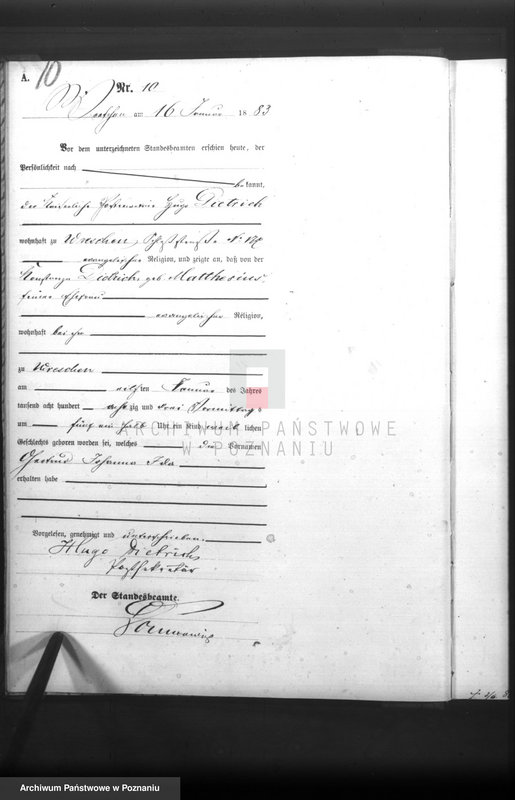 A. 10
Nr. 10
Wreschen am 16 Januar 1883
Vor dem unterzeichneten Standesbeamten erschien heute, der
Persönlichkeit nach
bekannt,
der Kaiserliche Hugo Dietrich
wohnhaft zu Wreschen, Schloßstraße No
evangelischer Religion, und zeigte an, daß von der
Dietrich geb. Matthesius,
seiner Ehefrau
evangelischer Religion,
wohnhaft bei ihm
zu Wreschen
am elften Januar des Jahres
tausend acht hundert achtzig und drei Vormittags
um fünf ein halb Uhr ein Kind weiblichen
Geschlechts geboren worden sei, welches die Vornamen
Gertrud Johanna Ida
erhalten habe
Vorgelesen, genehmigt und unterschrieben.
Hugo Dietrich
Postsekretär
Der Standesbeamte.
ARCHIWUM PAŃSTWOWE
W POZNANIU
Archiwum Państwowe w Poznaniu